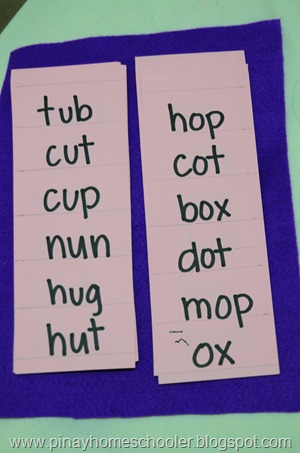 tub
cut
cup
nun
hug
hut
hop
cot
box
dot
mop
ox
www.pinayhomeschooler.blogspot.com